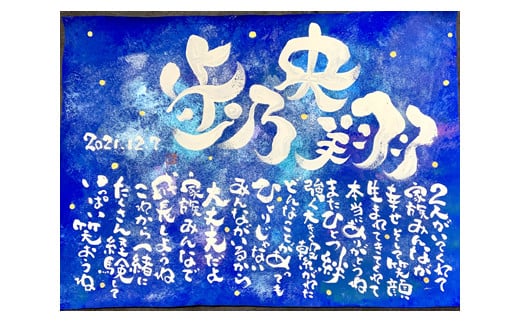 歩乃
央
2021.12.7
2人がいてくれて
家族みんなが
幸せそして笑顔に
生まれてきてくれて
本当にありがとうね
またひとつ絆
強く大きく結ばれた
どんなことがあっても
ひとりじゃない
みんながいるから
大丈夫だよ
家族みんなで
成長しようね
これから一緒に
たくさん経験して
いっぱい笑おうね